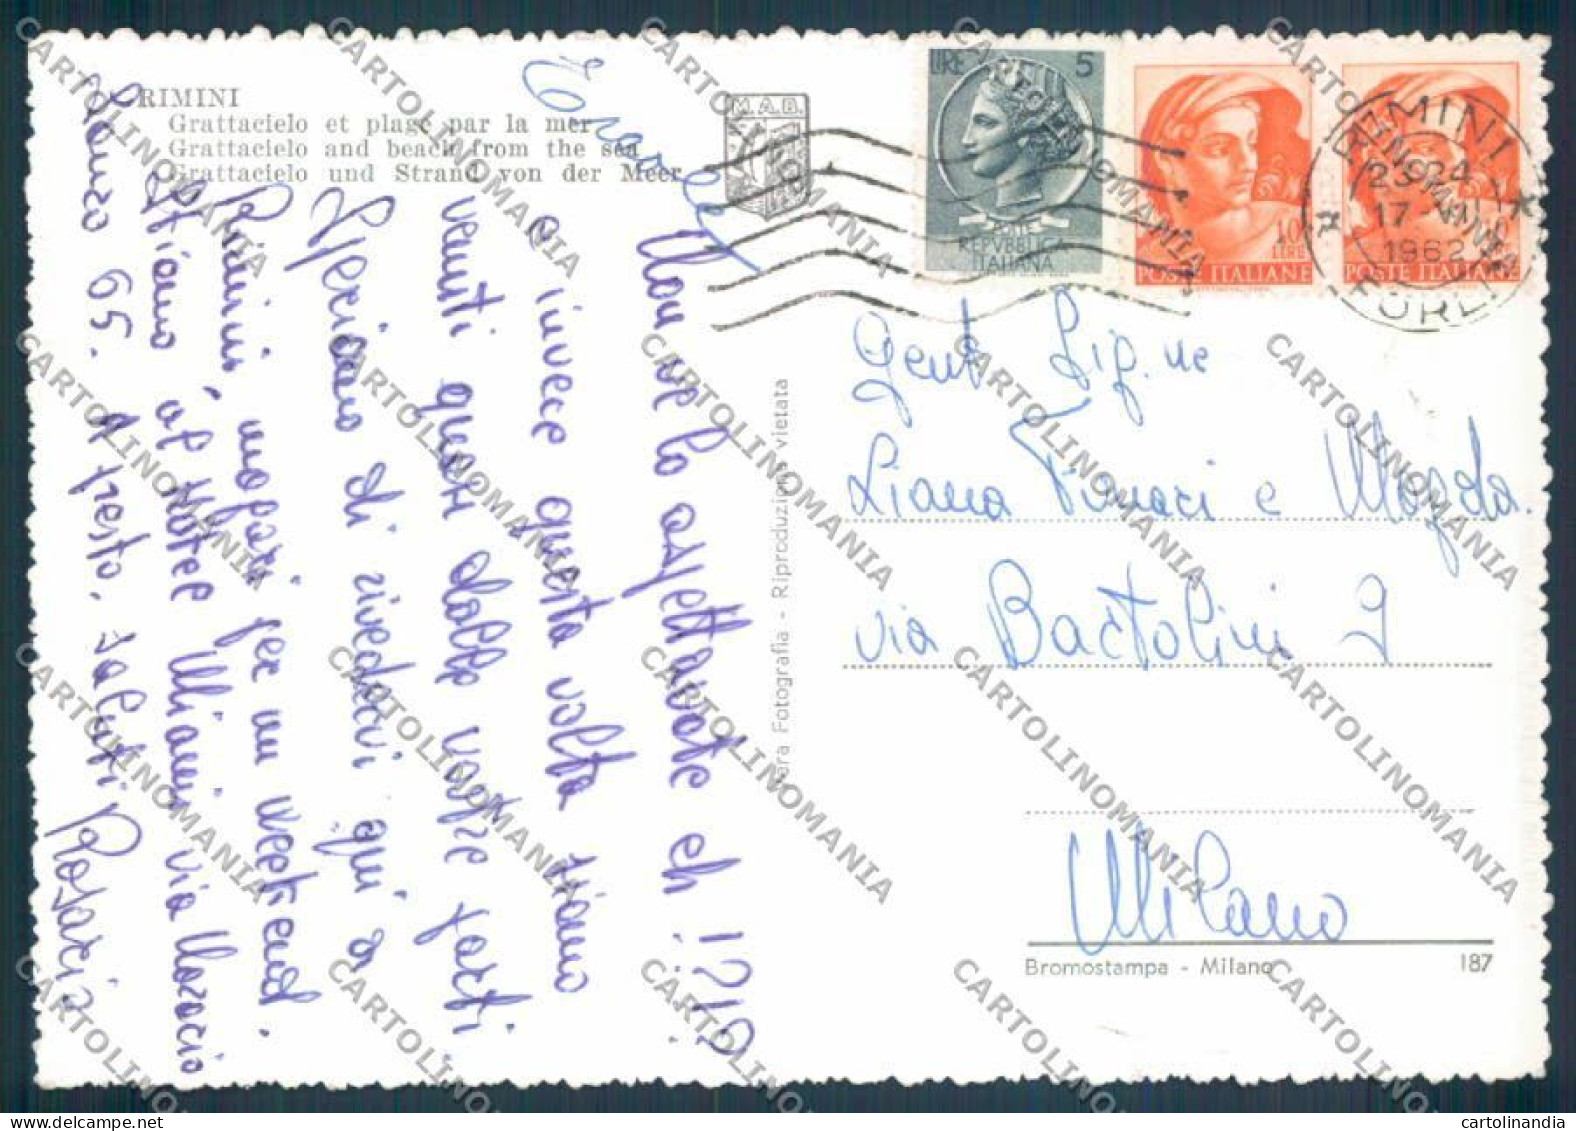 RIMINI
Grattacielo et plage par la mer
Grattacielo and beach from the sea
Grattacielo und Strand von der Meer
M.A.B.
LIRE 5
REPVBBLICA
ITALIANA
10
LIRE
POSTE ITALIANE
POSTE ITALIANE
RIMINI
23-24
17-VII
1962
FORLI
Non ve lo aspettavate eh!?!?
e invece questa volta siamo
venuti quasi dalle vostre parti.
Speriamo di rivedervi qui a
Rimini, magari per un weekend.
Stiamo al Hotel Miami via
65. A presto. Saluti Rosaria
Gent. Sig.ne
Liana e Magda
via Bartolini 9
Milano
Vera Fotografia - Riproduzione vietata
Bromostampa - Milano
187
CARTOLINOMANIA
www.delcampe.net
cartolinandia